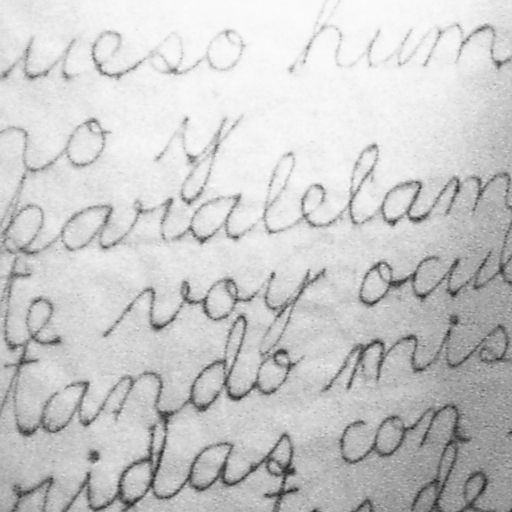 ueso hum
no y
paralelam
te voy ocul
tando mis
ridas con
de